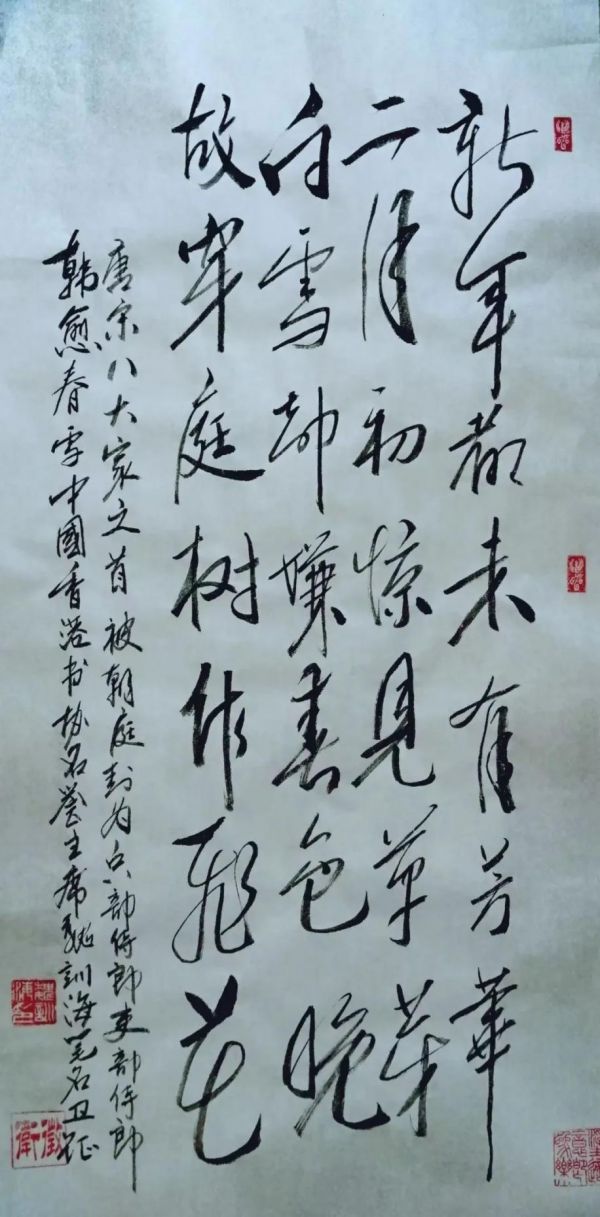 新年都未有芳華
二月初惊見草芽
白雪却嫌春色晚
故穿庭树作飛花
唐宋八大家之首被朝庭封为兵部侍郎吏部侍郎
韓愈春雪中國香港书协名誉主席魏訓海笔名卫征